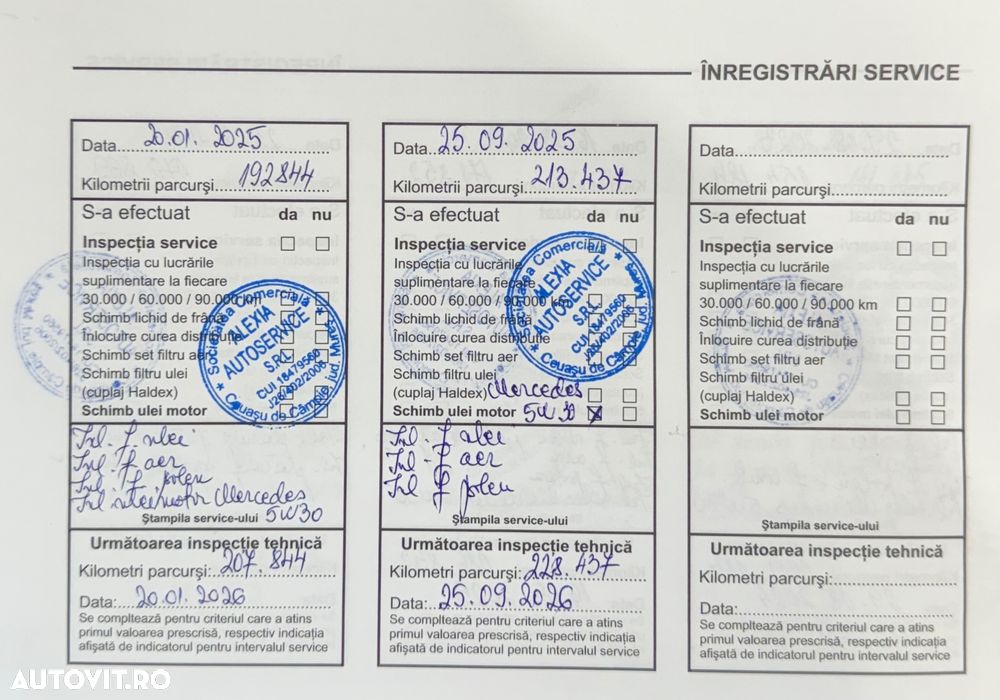 ÎNREGISTRĂRI SERVICE
Data 20.01.2025
Kilometrii parcurşi 192844
S-a efectuat da nu
Inspecţia service
Inspecţia cu lucrările
suplimentare la fiecare
30.000 / 60.000 / 90.000 km
Schimb lichid de frână
Înlocuire curea distribuţie
Schimb set filtru aer
Schimb filtru ulei
(cuplaj Haldex)
Schimb ulei motor
Societatea Comercială
ALEXIA
AUTOSERVICE
S.R.L.
CUI 18479560
J26/402/2006
Ceuaşu de Câmpie, jud. Mureş
Înl. f ulei
Înl f aer
Înl f polen
Înl ulei motor Mercedes
5W30
Ştampila service-ului
Următoarea inspecţie tehnică
Kilometri parcurşi: 207.844
Data: 20.01.2026
Se compltează pentru criteriul care a atins
primul valoarea prescrisă, respectiv indicaţia
afişată de indicatorul pentru intervalul service
Data 25.09.2025
Kilometrii parcurşi 213.437
S-a efectuat da nu
Inspecţia service
Inspecţia cu lucrările
suplimentare la fiecare
30.000 / 60.000 / 90.000 km
Schimb lichid de frână
Înlocuire curea distribuţie
Schimb set filtru aer
Schimb filtru ulei
(cuplaj Haldex) Mercedes
Schimb ulei motor 5W30 X
Societatea Comercială
ALEXIA
AUTOSERVICE
S.R.L.
CUI 18479560
J26/402/2006
Ceuaşu de Câmpie, jud. Mureş
Înl - f ulei
Înl - f aer
Înl f polen
Ştampila service-ului
Următoarea inspecţie tehnică
Kilometri parcurşi: 228.437
Data: 25.09.2026
Se compltează pentru criteriul care a atins
primul valoarea prescrisă, respectiv indicaţia
afişată de indicatorul pentru intervalul service
Data
Kilometrii parcurşi
S-a efectuat da nu
Inspecţia service
Inspecţia cu lucrările
suplimentare la fiecare
30.000 / 60.000 / 90.000 km
Schimb lichid de frână
Înlocuire curea distribuţie
Schimb set filtru aer
Schimb filtru ulei
(cuplaj Haldex)
Schimb ulei motor
Ştampila service-ului
Următoarea inspecţie tehnică
Kilometri parcurşi:
Data:
Se compltează pentru criteriul care a atins
primul valoarea prescrisă, respectiv indicaţia
afişată de indicatorul pentru intervalul service
AUTOVIT.RO